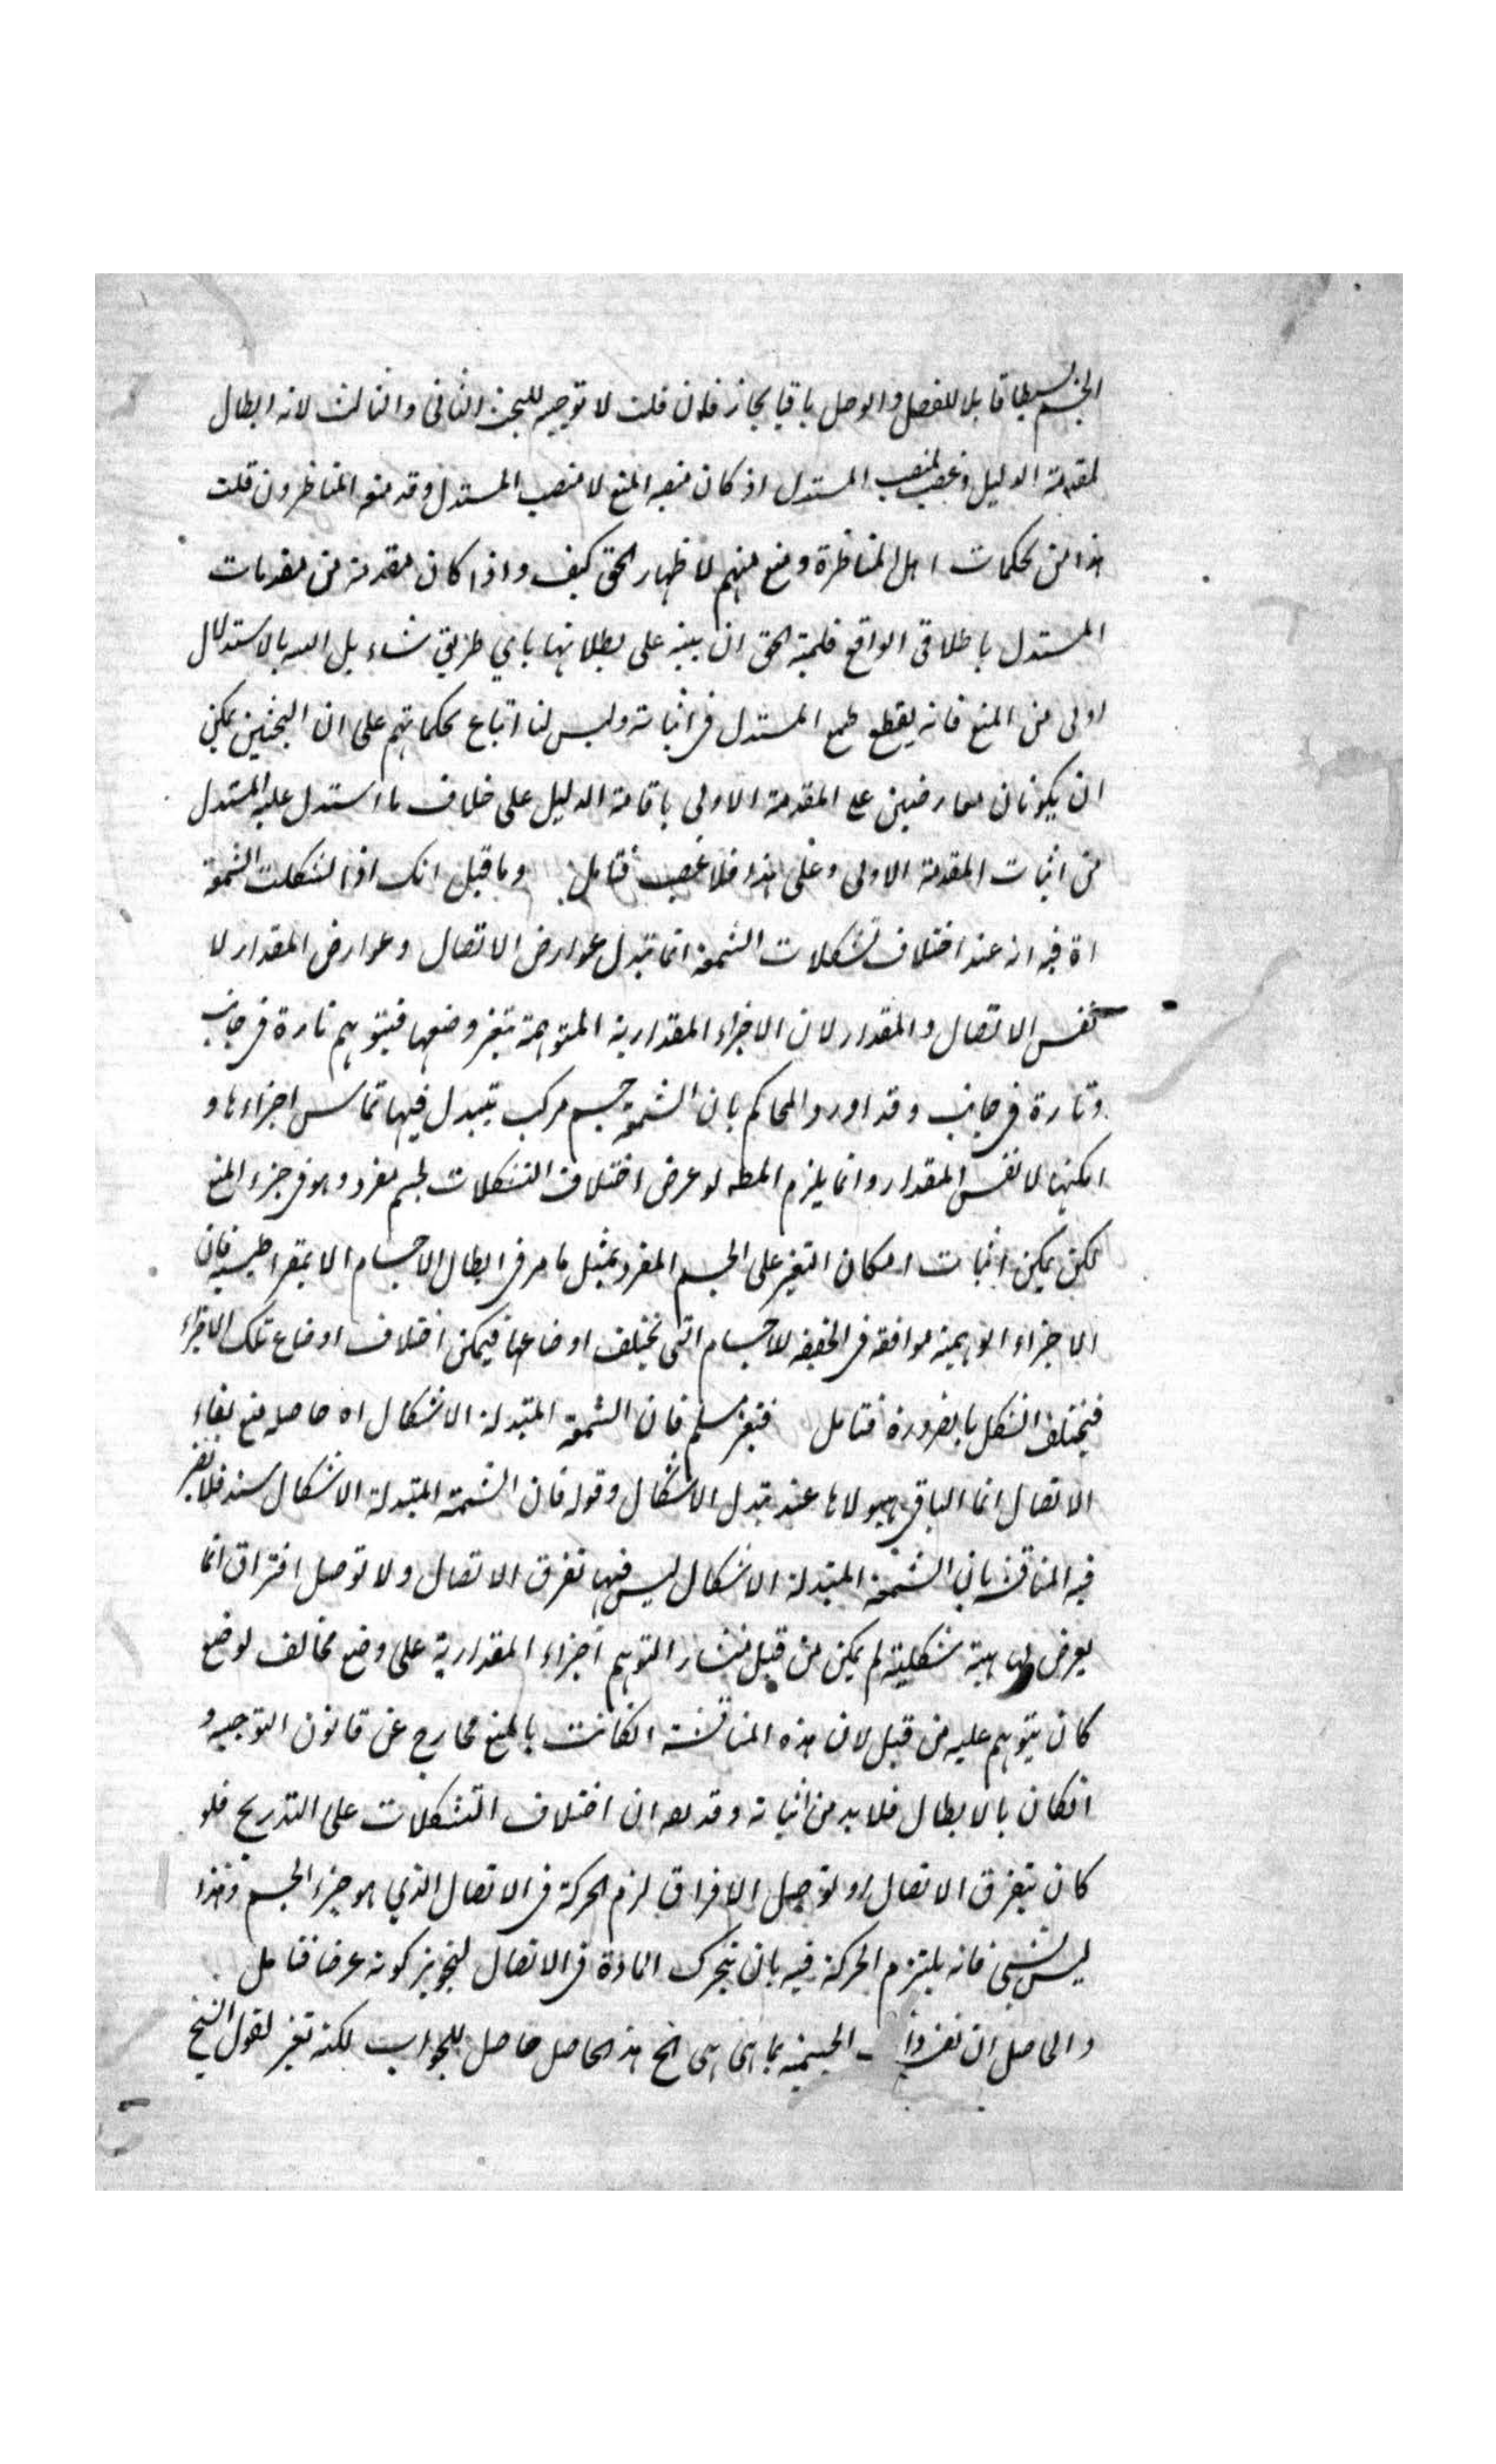 الجسم بسيطا قابلا للفصل والوصل باقيا بحاز فان قلت لا توجيه للبحث الثانى والثالث لانه ابطال
لمقدمة الدليل وغصب لمنصب المستدل اذ كان منصبه المنع لا منصب المستدل وقد منعه المناظرون قلت
هذا من تحكمات اهل المناظرة ومنع منهم لاظهار الحق كيف واذا كان مقدمة من مقدمات
المستدل باطلا فى الواقع فلمية الحق ان ينبه على بطلانها باي طريق شاء بل التنبيه بالاستدلال
اولى من المنع فانه يقطع طمع المستدل فى اثباته وليس لنا اتباع تحكماتهم على ان البحثين يمكن
ان يكونان معارضين على المقدمة الاولى باقامة الدليل على خلاف ما استدل عليه المستدل
من اثبات المقدمة الاولى وعلى هذا فلا غصب فتامل وما قيل انك اذا شكلت الشمعة
اه فيه انه عند اختلاف تشكلات الشمعة انما تتبدل عوارض الاتصال وعوارض المقدار لا
نفس الاتصال والمقدار لان الاجزاء المقدارية المتوهمة يتغير وضعها فيتوهم تارة فى جانب
وتارة فى جانب وقد اورد المحاكم بان الشمعة جسم مركب يتبدل فيها تماس اجزاءها و
امكنها لا نفس المقدار وانما يلزم المطه لو عرض اختلاف التشكلات لجسم مفرد وهو فى جزء المنع
لكن يمكن اثبات امكان التغير على الجسم المفرد بمثل ما مر فى ابطال الاجسام الذيمقراطيسية فان
الاجزاء الوهمية موافقة فى الحقيقة للاجسام التى تختلف اوضاعها فيمكن اختلاف اوضاع تلك الاجزاء
فيختلف الشكل بالضرورة فتامل فتغير مسلم فان الشمعة المتبدلة الاشكال اه حاصله منع بقاء
الاتصال انما الباقى هيولاها عند تبدل الاشكال وقوله فان الشمعة المتبدلة الاشكال سند فلا يضر
فيه المناقشة بان الشمعة المتبدلة الاشكال ليس فيها تفرق الاتصال ولا توصل افتراق انما
يعرض لها هيئة شكلية لم يكن من قبل منشاء التوهم اجزاء المقدارية على وضع مخالف لوضع
كان يتوهم عليه من قبل لان هذه المناقشة انكانت بالمنع فخارج عن قانون التوجيه و
انكان بالابطال فلا بد من اثباته وقد ان اختلاف التشكلات على التدريج فلو
كان يتفرق الاتصال او توصل الافراق لزم الحركة فى الاتصال الذي هو جزء الجسم وهذا
ليس بشئ فانه يلتزم الحركة فيه بان تتحرك المادة فى الاتصال لتجويز كونه عرضا فتامل
والحاصل ان الجسمية بما هى هى الخ هذا الحاصل حاصل للجواب لكنه تغير لقول الشيخ